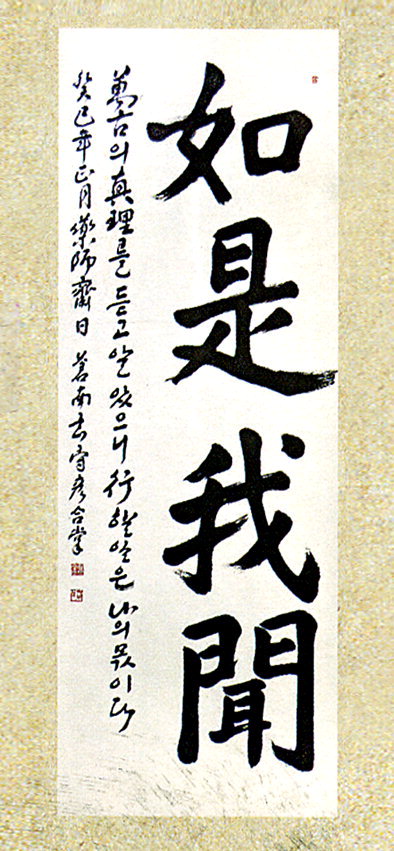 如是我聞
萬古의 眞理를 듣고 알았으니 行할 일은 나의 몫이다
癸巳年 正月 藥師齋日 蒼南 高守彦 合掌